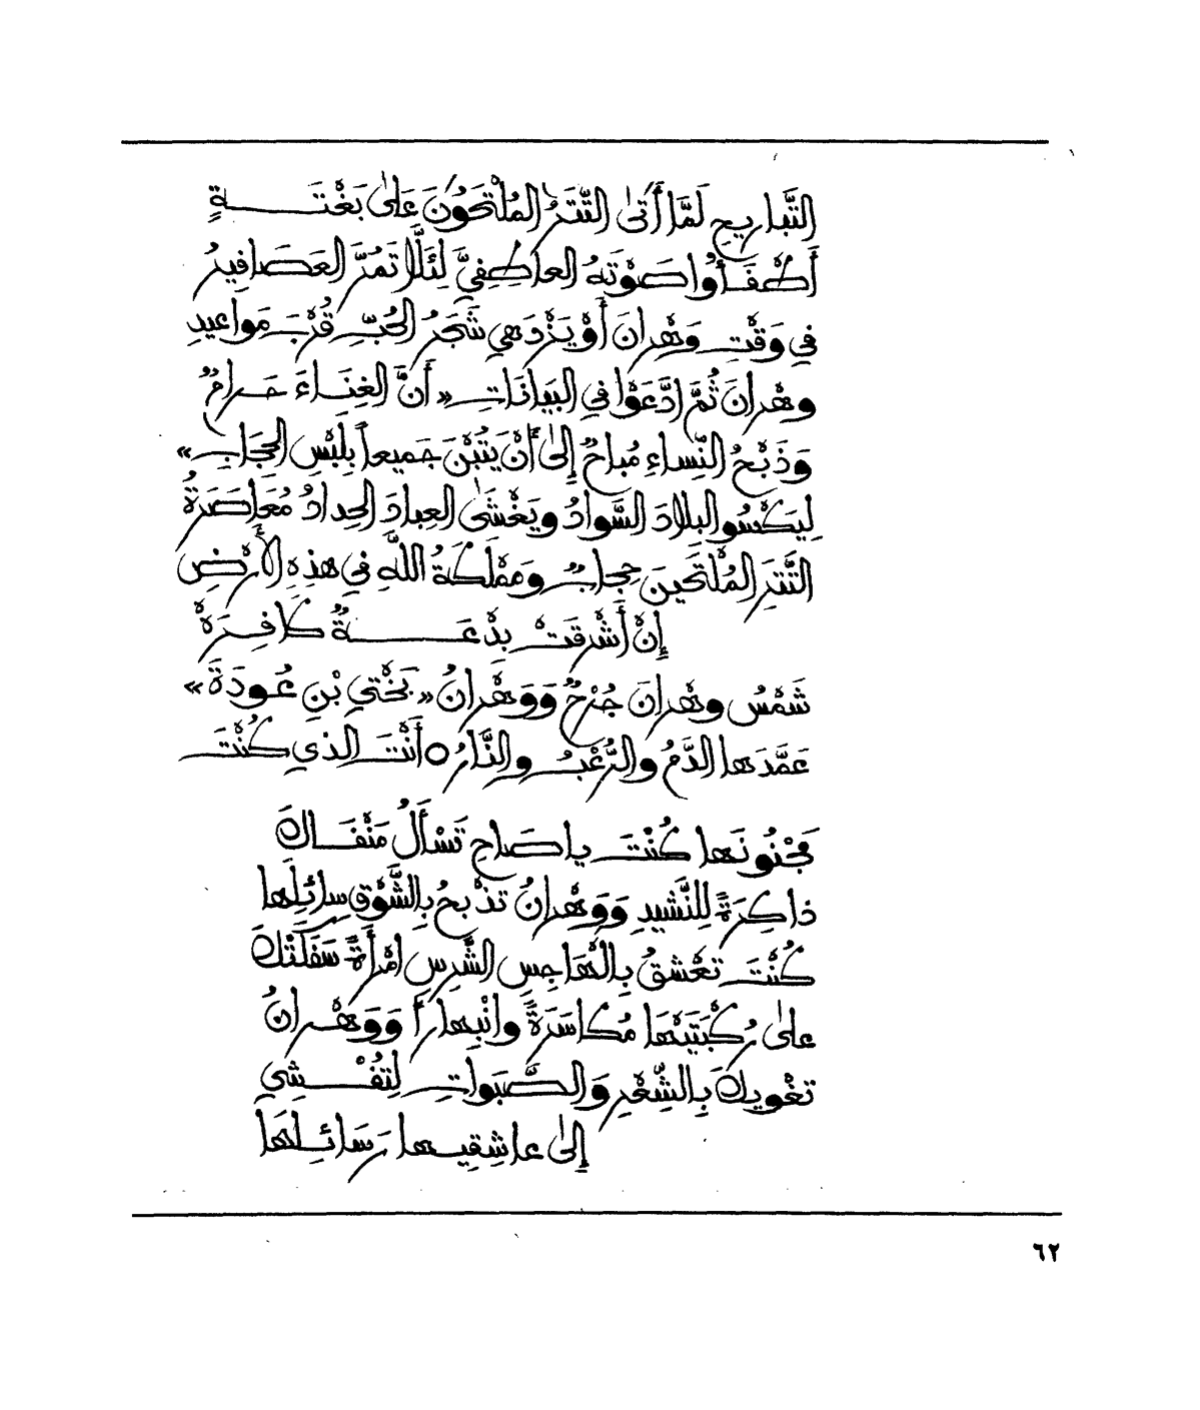 التَّبارِيحِ لَمَّا أَتَى التَّتَرُ المُلْتَحُونَ عَلَى بَغْتَـــةٍ
أَطْفَأُوا صَوْتَهُ العاطِفِيَّ لِئَلَّا تَمُرَّ العَصَافِيرُ
فِي وَقْتِ وَهْرانَ أَوْ يَزْدَهِي شَجَرُ الحُبِّ قُرْبَ مَواعيدِ
وهْرانَ ثُمَّ ادَّعَوْا فِي البَيَانَاتِ «أَنَّ الغِنَـاءَ حَـرامٌ
وَذَبْحُ النِّساءِ مُباحٌ إِلَى أَنْ يَتُبْنَ جَميعاً بِلُبْسِ الحِجَابِ»
لِيَكْسُو البلادَ السَّوادُ ويَغْشَى العِبادَ الحِدادُ مُعَاصَرَةُ
التَّتَرِ المُلْتَحِينَ حِجابٌ ومَمْلَكَةُ اللَّهِ فِي هَذِهِ الأَرْضِ
إِنْ أَشْرَقَتْ بِدْعَـــةٌ كَافِـرَةْ
شَمْسُ وهْرانَ جُرْحٌ وَوَهْرانُ «بَخْتِي بْنِ عُودَةَ»
عَمَّدَها الدَّمُ والرُّعْبُ والنَّارُ ٥ أَنْتَ الذِي كُنْتَ
مَجْنُونَها كُنْتَ يا صَاحِ تَسْأَلُ مَنْفَـاكَ
ذاكِرَةً لِلنَّشيدِ وَوَهْرانُ تَذْبَحُ بِالشَّوْقِ سائِلَها
كُنْتَ تَعْشَقُ بِالْهَاجِسِ الشَّرِسِ امْرأَةً سَفَلَتْكَ
عَلَى رُكْبَتَيْهَا مُكَاسَرَةً وانْبِهاراً وَوَهْـرانُ
تغْويكَ بِالشِّعْرِ وَالصَّبَواتِ لِتُفْـشِي
إِلَى عاشِقِيـها رَسَائِـلَهَا
٦٢